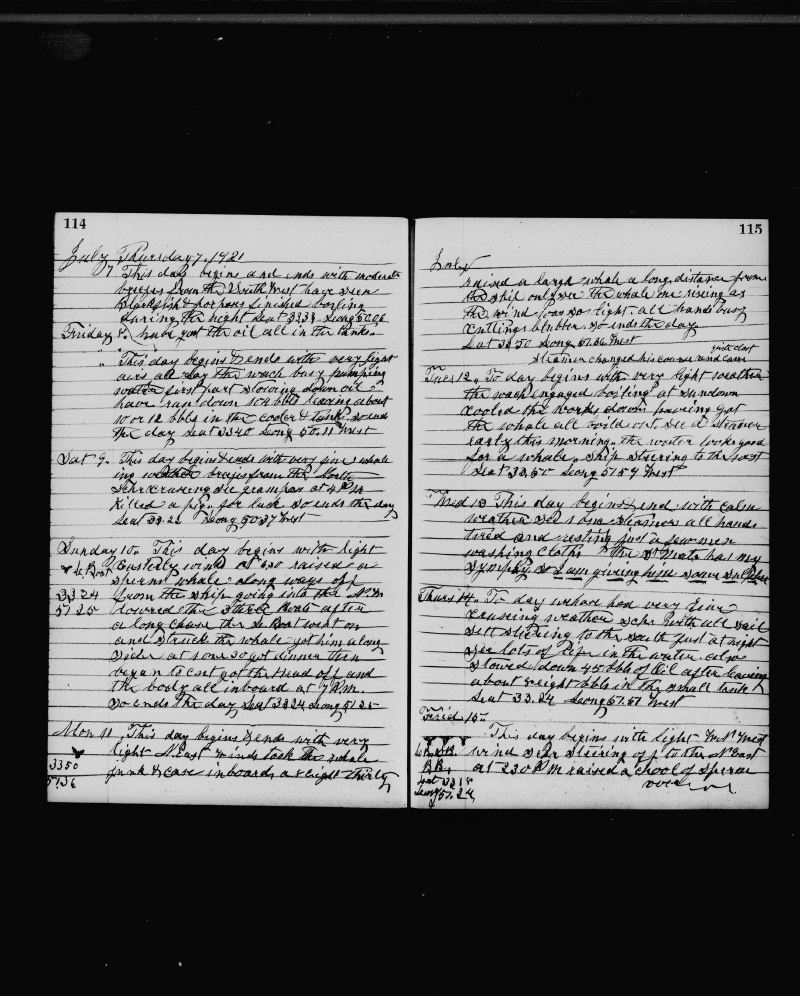 114
July Thursday 7. 1921
7 This day begins and ends with moderate
breezes from the South West have seen
Blackfish & porpoes finished boiling
during the night Lat 33.33 Long 50.06
Friday 8. have got the oil all in the tank.
" This day begins & ends with very light
airs all day the wach busy pumping
water first part stowing down oil
have run down 104 bbls leaving about
10 or 12 bbls in the cooler & tank. so ends
the day Lat 33.40 Long 50.11 West
Sat 9. This day begins & ends with very fine whale
ing weather from the North
Schr cruising see grampos at 4 P.M
Killed a pig. for luck so ends the day
Lat 33.22 Long 50 37 West
Sunday 10. This day begins with light
Boat Easterly wind at 6 30 raised a
sperm whale along ways off
33 24 from the ship going into the
51 25 lowered the three Boats after
a long chase the Boat went on
and struck the whale got him along
side at 1 one 30 got dinner then
began to cut got the Head off and
the body all inboard at 7 P.M.
so ends the day Lat 33 24 Long 51 25
Mon 11 This day begins & ends with very
light N. East winds took the whale
33 50 junk & case inboard a & Eight thirty
51.36
115
July
raised a large whale a long distance from
the ship only see the whale one rising as
the wind was so light. all hands busy
cutting blubber. so ends the day
Lat 33 50 Long 51.36 West
Steamer changed his course and came
Tues 12. To day begins with very light weather
the wach engaged boiling at sundown
cooled the works down having got
the whale all boild out. see a steamer
early this morning. the water looks good
for a whale. ship steering to the
Lat 33.50 Long 51 59 West
Wed 13 This day begins & end with calm
weather see 1 one steamer all hands
tired and resting just a few men
washing cloths " The Mate has my
sympthy so I am giving him some sulpher
Thurs 14. To day we have had very fine
cruising weather schr with all sail
set steering to the south just at night
see lots of life in the water. also
stowed down 45 bbls of Oil after leaving
about eight bbls in the small tank
Lat 33.24 Long 51.57 West
Frid 15.
This day begins with light West
wind Schr steering off to the N. East
at 2 30 P M raised a chool of sperm
Lat 33 18
Long 51.24
over